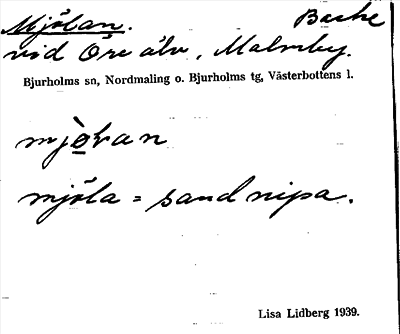 Mjölan. Backe
vid Öre älv, Malmby.
Bjurholms sn, Nordmaling o. Bjurholms tg, Västerbottens l.
mjö̀lan
mjöla = sandnipa.
Lisa Lidberg 1939.